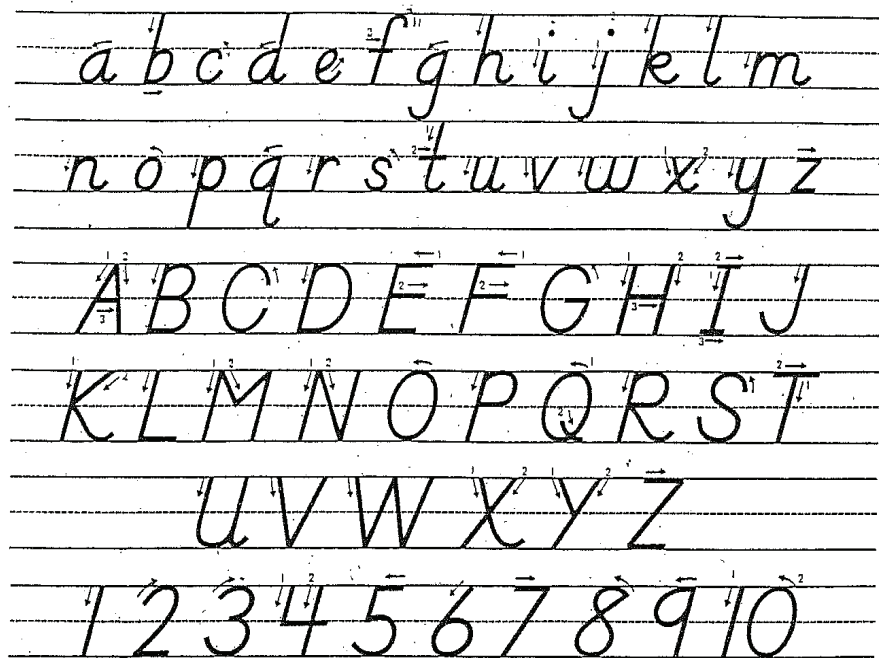 a b c d e f g h i j k l m
n o p q r s t u v w x y z
A B C D E F G H I J
K L M N O P Q R S T
U V W X Y Z
1 2 3 4 5 6 7 8 9 10